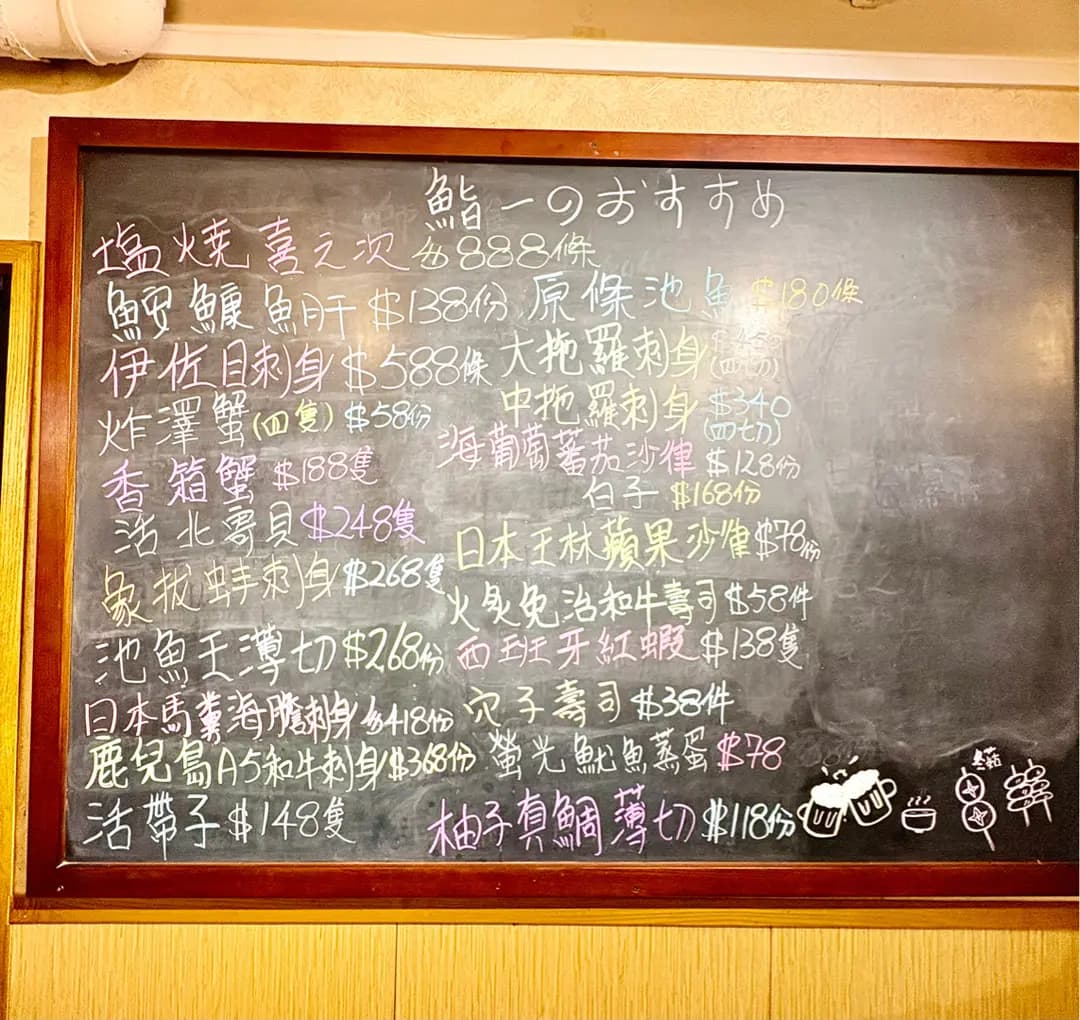 鮨一のおすすめ
塩燒喜之次 $888條
鮟鱇魚肝 $138份
伊佐目刺身 $588條
炸澤蟹(四隻) $58份
香箱蟹 $188隻
活北寄貝 $248隻
象拔蚌刺身 $268隻
池魚王薄切 $268份
日本馬糞海膽刺身 $418份
鹿兒島A5和牛刺身 $368份
活帶子 $148隻
原條池魚 $180條
大拖羅刺身
(四切)
中拖羅刺身 $340
(四切)
海葡萄蕃茄沙律 $128份
白子 $168份
日本王林蘋果沙律 $78份
火炙免治和牛壽司 $58件
西班牙紅蝦 $138隻
穴子壽司 $38件
螢光魷魚蒸蛋 $78
柚子真鯛薄切 $118份
冬菇